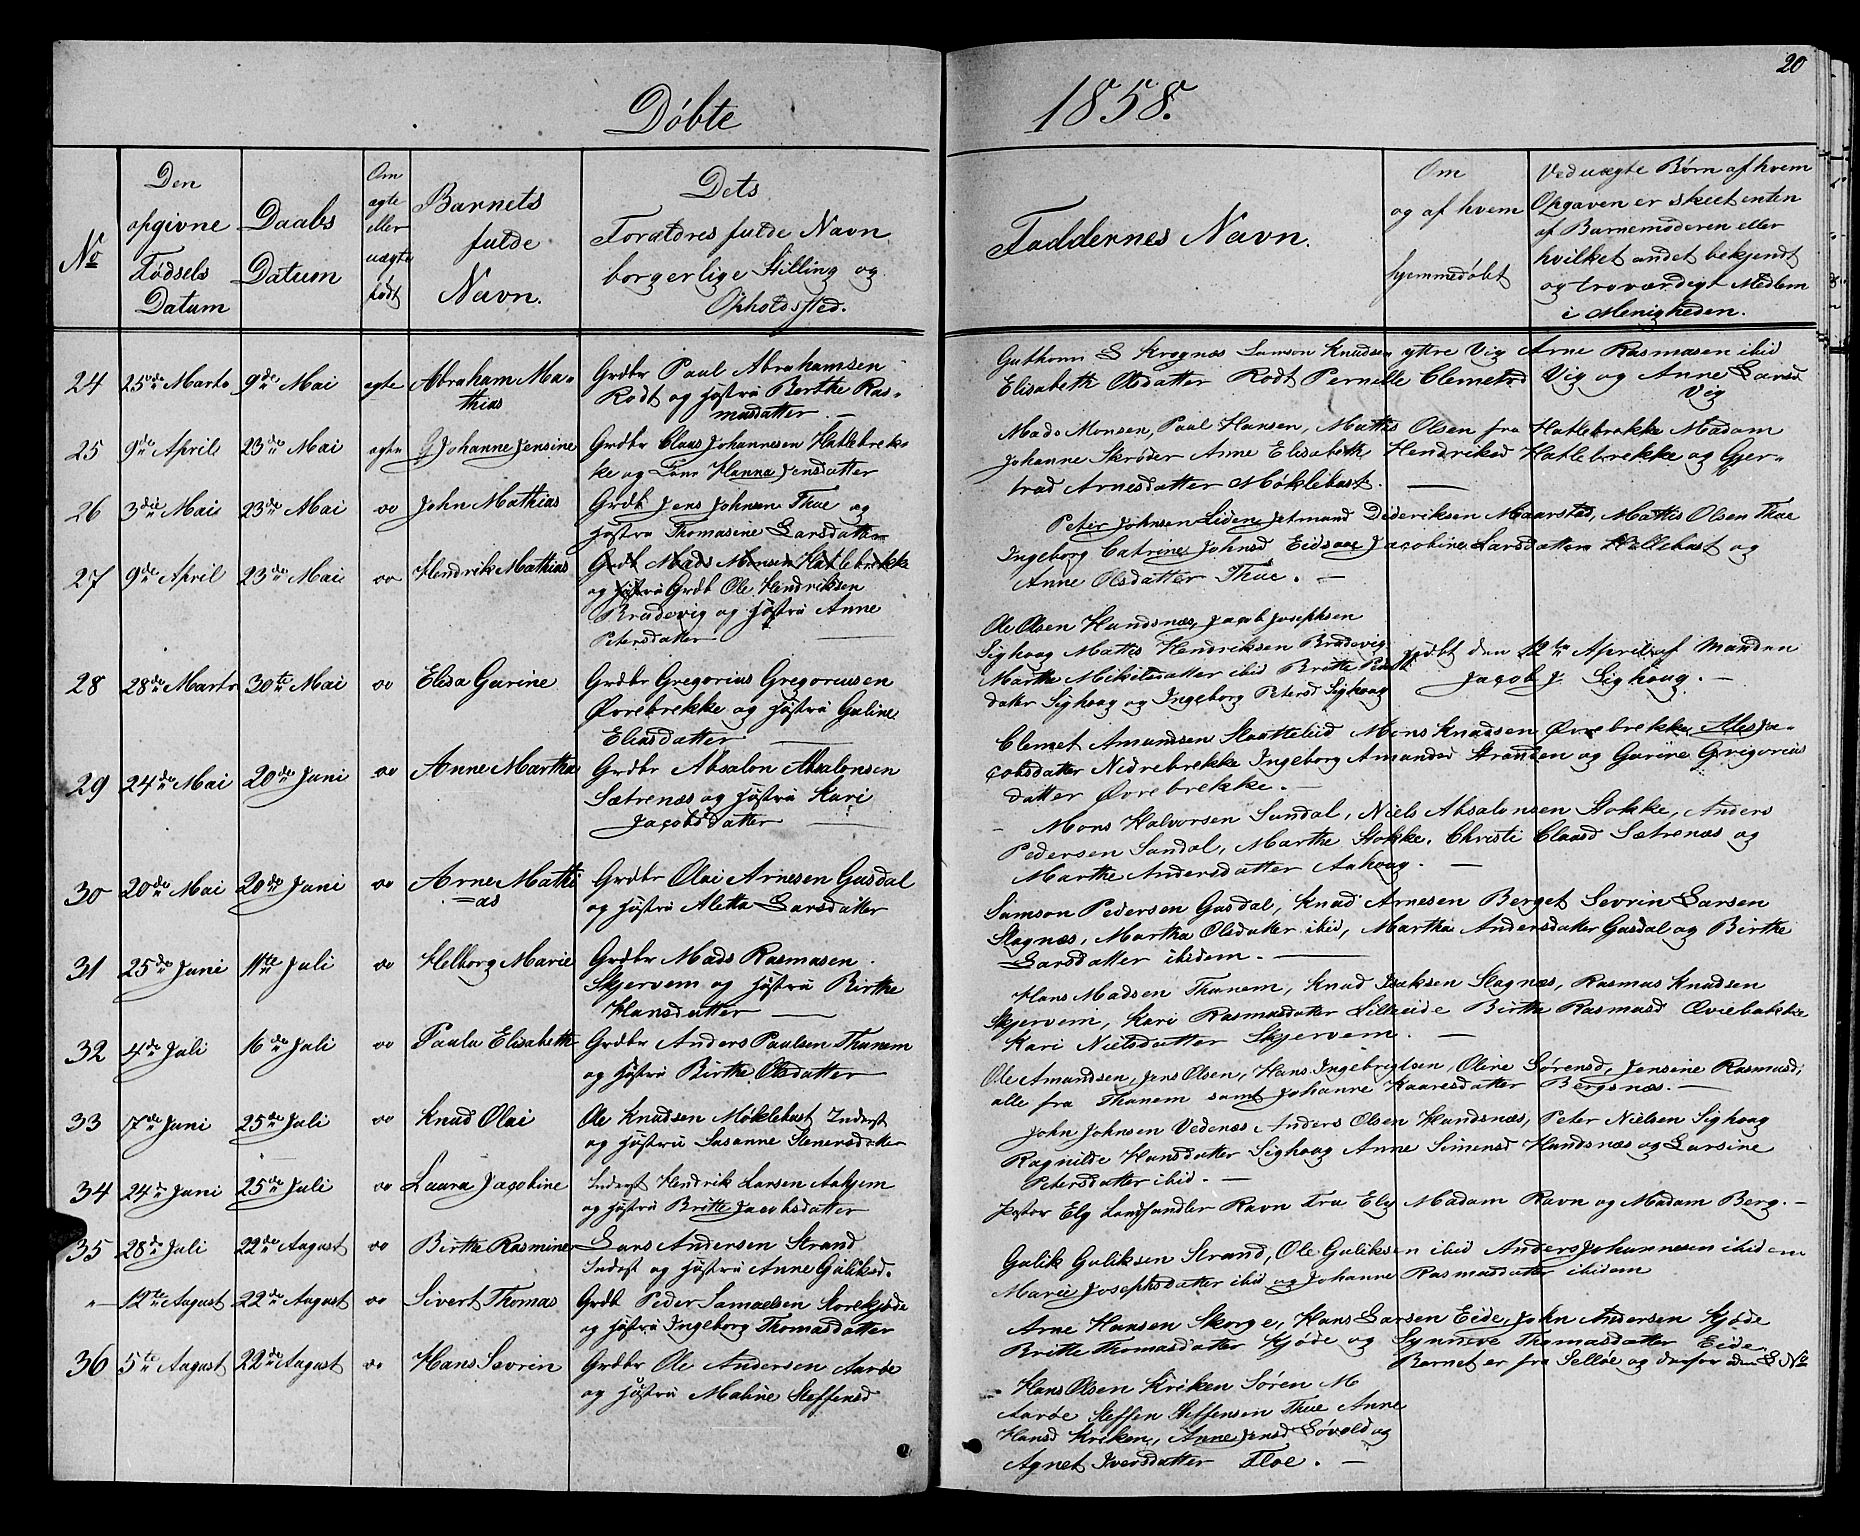 20
Døbte
1858.
No
Den opgivne Fødsels Datum
Daabs Datum
Om ægte eller uægte født
Barnets fulde Navn.
Dets Forældres fulde Navn borgerlige Stilling og Opholdssted.
Faddernes Navn.
Om og af hvem hjemmedøbt
Ved uægte Børn af hvem
Opgaven er skeet enten
af Barnemoderen eller
hvilket andet bekjendt
og troværdigt Medlem
i Menigheden.
24 25de Marts 9de Mai ægte Abraham Ma-
thias
Grdbr Paul Abrahamsen
Rodt og Hustru Berthe Ras-
musdatter. —
Guthorm S Krognæs Samson Knudsen yttre Vig Arne Rasmusen ibid
Elisabeth Olsdatter Rodt Pernelle Clemetsd Vig og Anne Larsd
Vig
25 9de April 23de Mai ægte Johanne Jensine
Grdbr Claus Johannesen Hatlebrek-
ke og Hanna Jensdatter
Mads Monsen, Paul Hansen, Mattis Olsen fra Hatlebrekke Madam
Johanne Skrøder Anne Elisabeth Hendriksd Hatlebrekke og Gjer-
trud Arnesdatter Møklebust. —
26 3die Mai 23de Mai oo John Mathias
Grdb Jens Johnsen Thue og
Hustru Thomasine Larsdatter
Peter Johnsen Liden Jetmund Dideriksen Maarstad, Mattis Olsen Thue
Ingeborg Catrine Johnsd Eidsaae Jacobine Larsdatter Hellebust og
Anne Olsdatter Thue. —
27 9de April 23de Mai oo Hendrik Mathias
Grdb Mads Monsen Hatlebrekke
og Hustru Grdb Ole Hendriksen
Brudevig og Hustru Anne
Petersdatter —
Ole Olsen Hundsnæs, Jacob Josephsen
Sighoug Mattis Hendriksen Brudevig
Marthe Mikelsdatter ibid Britte Peders
datter Sighoug og Ingeborg Petersd Sighoug
døbt den 12te April af Manden
Jacob J. Sighoug. —
28 28de Marts 30te Mai oo Elisa Gurine
Grdbr Gregorius Gregoriusen
Øvrebrekke og Hustru Guline
Eliasdatter —
Clemet Amundsen Slottelid Mons Knudsen Øvrebrekke, Ales Ja-
cobsdatter Nedrebrekke Ingeborg Amundsd Stranden og Gurine Gregorius
datter Øvrebrekke. —
29 24de Mai 20de Juni oo Anne Martha
Grdbr Absalon Absalonsen
Sætrenæs og Hustru Kari
Jacobsdatter —
Mons Halvorsen Sundal, Niels Absalonsen Stokke, Anders
Pedersen Sandal, Marthe Stokke, Christi Claasd Sætrenæs og
Marthe Andersdatter Aahoug. —
30 20de Mai 20de Juni oo Arne Mathi
=as
Grdbr Olai Arnesen Gusdal
og Hustru Aletta Larsdatter
Samson Pedersen Gusdal, Knud Arnesen Berget Sevrin Larsen
Slagnæs, Martha Olsdatter ibid, Martha Andersdatter Gusdal og Birthe
Larsdatter ibidem. —
31 25de Juni 11te Juli oo Helborg Marie
Grdbr Mads Rasmusen
Skjervem og Hustru Birthe
Hansdatter —
Hans Madsen Thunem, Knud Isaksen Slagnæs, Rasmus Knudsen
Skjervem, Kari Rasmusdatter Lilleeide Birthe Rasmusd Qviebakke
Kari Nielsdatter Skjervem. —
32 4de Juli 16de Juli oo Paula Elisabeth
Grdbr Anders Paulsen Thunem
og Hustru Birthe Olsdatter
Ole Amundsen, Jens Olsen, Hans Ingebrigtsen, Oline Sørensd, Jensine Rasmusd,
alle fra Thunem samt Johanne Kaaresdatter Bergsnæs. —
33 7de Juni 25de Juli oo Knud Olai
Ole Knudsen Møklebust Inderst
og Hustru Susanne Stenersdatter
John Johnsen Vedenæs Anders Olsen Hundsnæs, Peter Nielsen Sighoug
Ragnilde Hansdatter Sighoug Anne Simensd Hundsnæs og Larsine
Petersdatter ibid. —
34 24de Juni 25de Juli oo Laura Jacobine
Inderst Hendrik Larsen Aahjem
og Hustru Britte Jacobsdatter
Pastor Elg Landhandler Ravn Fru Elg Madam Ravn og Madam Berg. —
35 28de Juli 22de August oo Birthe Rasmine
Lars Andersen Strand
Inderst og Hustru Anne Guliksd.
Gulik Guliksen Strand, Ole Guliksen ibid Anders Johannesen ibidem
Marie Josephsdatter ibid og Johanne Rasmusdatter ibidem
" 12te August 22de August oo Sivert Thomas
Grdb Peder Samuelsen Storekjøde
og Hustru Ingeborg Thomasdatter
Arne Hansen Skorge, Hans Larsen Eide, John Andersen Kjøde
Britte Thomasdatter Kjøde og Synneve Thomasdatter Eide
Barnet er fra Selløe og derfor uden L No
36 5te August 22de August oo Hans Sevrin
Grdbr Ole Andersen Aarøe
og Hustru Maline Steffensd
Hans Olsen Kriken Søren M
Aarøe Steffen Steffensen Thue Anne
Hansd Kriken, Anne Jensd Løvold og
Agnet Iversdatter Floe. —